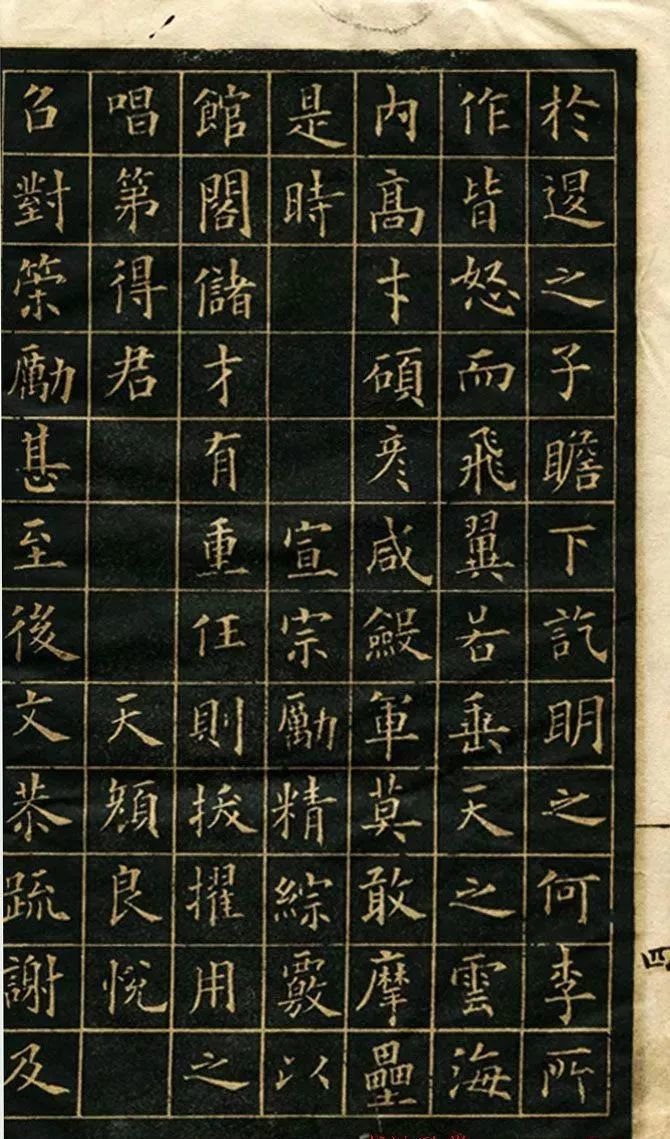 於退之子瞻下訖明之何李所
作皆怒而飛翼若垂天之雲海
內高才碩彥咸斂軍莫敢摩壘
是時 宣宗勵精綜覈以
館閣儲才有重任則拔擢用之
唱第得君 天顏良悅
召對策勵甚至後文恭疏謝及
四